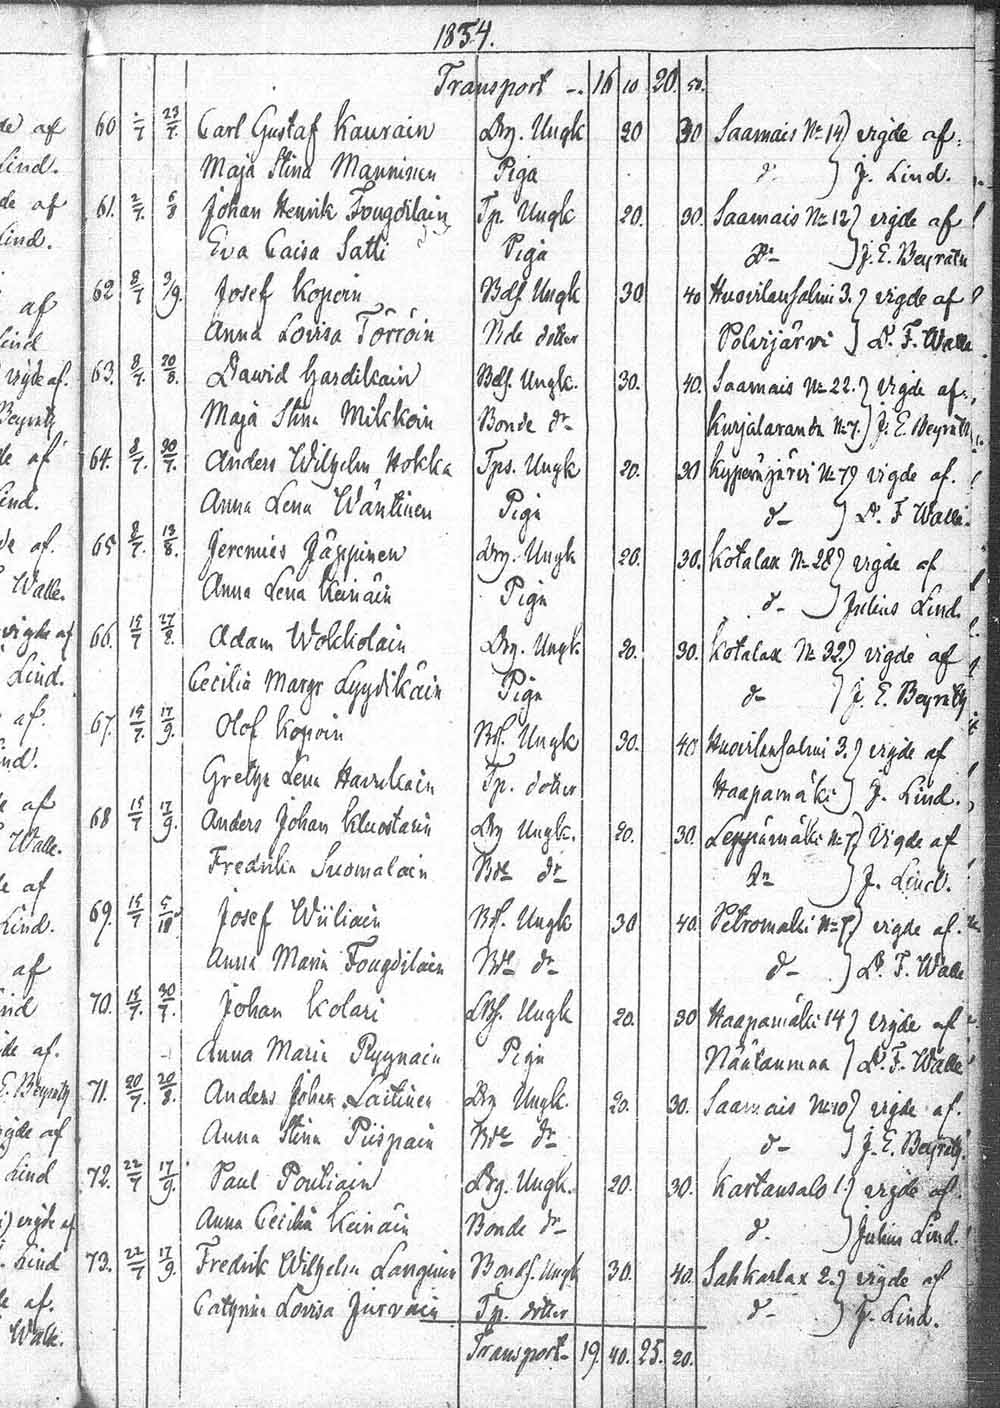 1854.
Transport -. 16 10 20. 50.
60 -/7 23/7. Carl Gustaf Kaurain Drg. Ungk 20 30 Saamais No 14 ) vigde af
Maja Stina Manninen Piga d- ) J. Lind.
61. 2/7. 6/8 Johan Henrik Fougdilain Tp. Ungk 20. 30. Saamais No 12 ) vigde af
Eva Caisa Satti Piga Do- ) J. E. Beyrath
62 8/7 3/9. Josef Kopoin Bds. Ungk 30 40 Huovilansalmi 3. ) vigde af
Anna Lovisa Törröin Bde dotter Polvijärvi ) D. F. Walle
63. 8/7. 20/8. Dawid Hardikain Bds. Ungk. 30. 40. Saamais No 22. ) vigde af.
Maja Stina Mikkoin Bonde dr Kurjalaranda No 7. ) J. E. Beyrath
64. 8/7. 30/7. Anders Wilhelm Hokka Tps. Ungk 20. 30 Kyperäjärvi No 7 ) vigde af.
Anna Lena Wäntinen Piga d- ) D. F Walle.
65 8/7. 13/8. Jeremias Jäppinen Drg. Ungk 20. 30. Kotalax No 28 ) vigde af
Anna Lena Keinäin Piga d- ) Julius Lind.
66. 15/7 27/8. Adam Wokkolain Drg. Ungk. 20. 30. Kotalax No 32. ) vigde af
Cecilia Margr Lyydikäin Piga d- ) J. E. Beyrath
67. 15/7. 17/9. Olof Kopoin Bds. Ungk 30. 40 Huovilansalmi 3. ) vigde af
Grethe Lena Haverkain Tp. dotter Haapamäki ) J. Lind.
68 15/7 17/9. Anders Johan Kluostarin Drg Ungk. 20. 30. Leppämäki No 7. ) Vigde af
Fredrika Suomalain Bde dr Do ) J. Lind.
69. 15/7 5/10 Josef Wiiliain Bds. Ungk 30 40. Petromäki No ) vigde af.
Anna Maria Fougdilain Bde dr d- ) D. F. Walle
70. 15/7. 30/7. Johan Kolari Bs. Ungk 20. 30 Haapamäki 14 ) vigde af
Anna Maria Ryynäin Piga Näätänmaa ) D. F. Walle
71. 20/7. 20/8. Anders Johan Laitinen Drg Ungk. 20. 30. Saamais No 10 ) vigde af.
Anna Stina Piispain Bde dr d- ) J. E. Beyrath.
72. 22/7 17/9. Paul Poutiain Drg. Ungk. 20. 30. Kartansalo 1. ) vigde af.
Anna Cecilia Keinäin Bonde dr d. ) Julius Lind.
73. 22/7 17/9. Fredrik Wilhelm Languin Bonds. Ungk 30. 40. Sahkarlax 2. ) vigde af
Cathrina Lovisa Jurvain Tp. dotter d- ) J. Lind.
Transport- 19. 40. 25. 20.